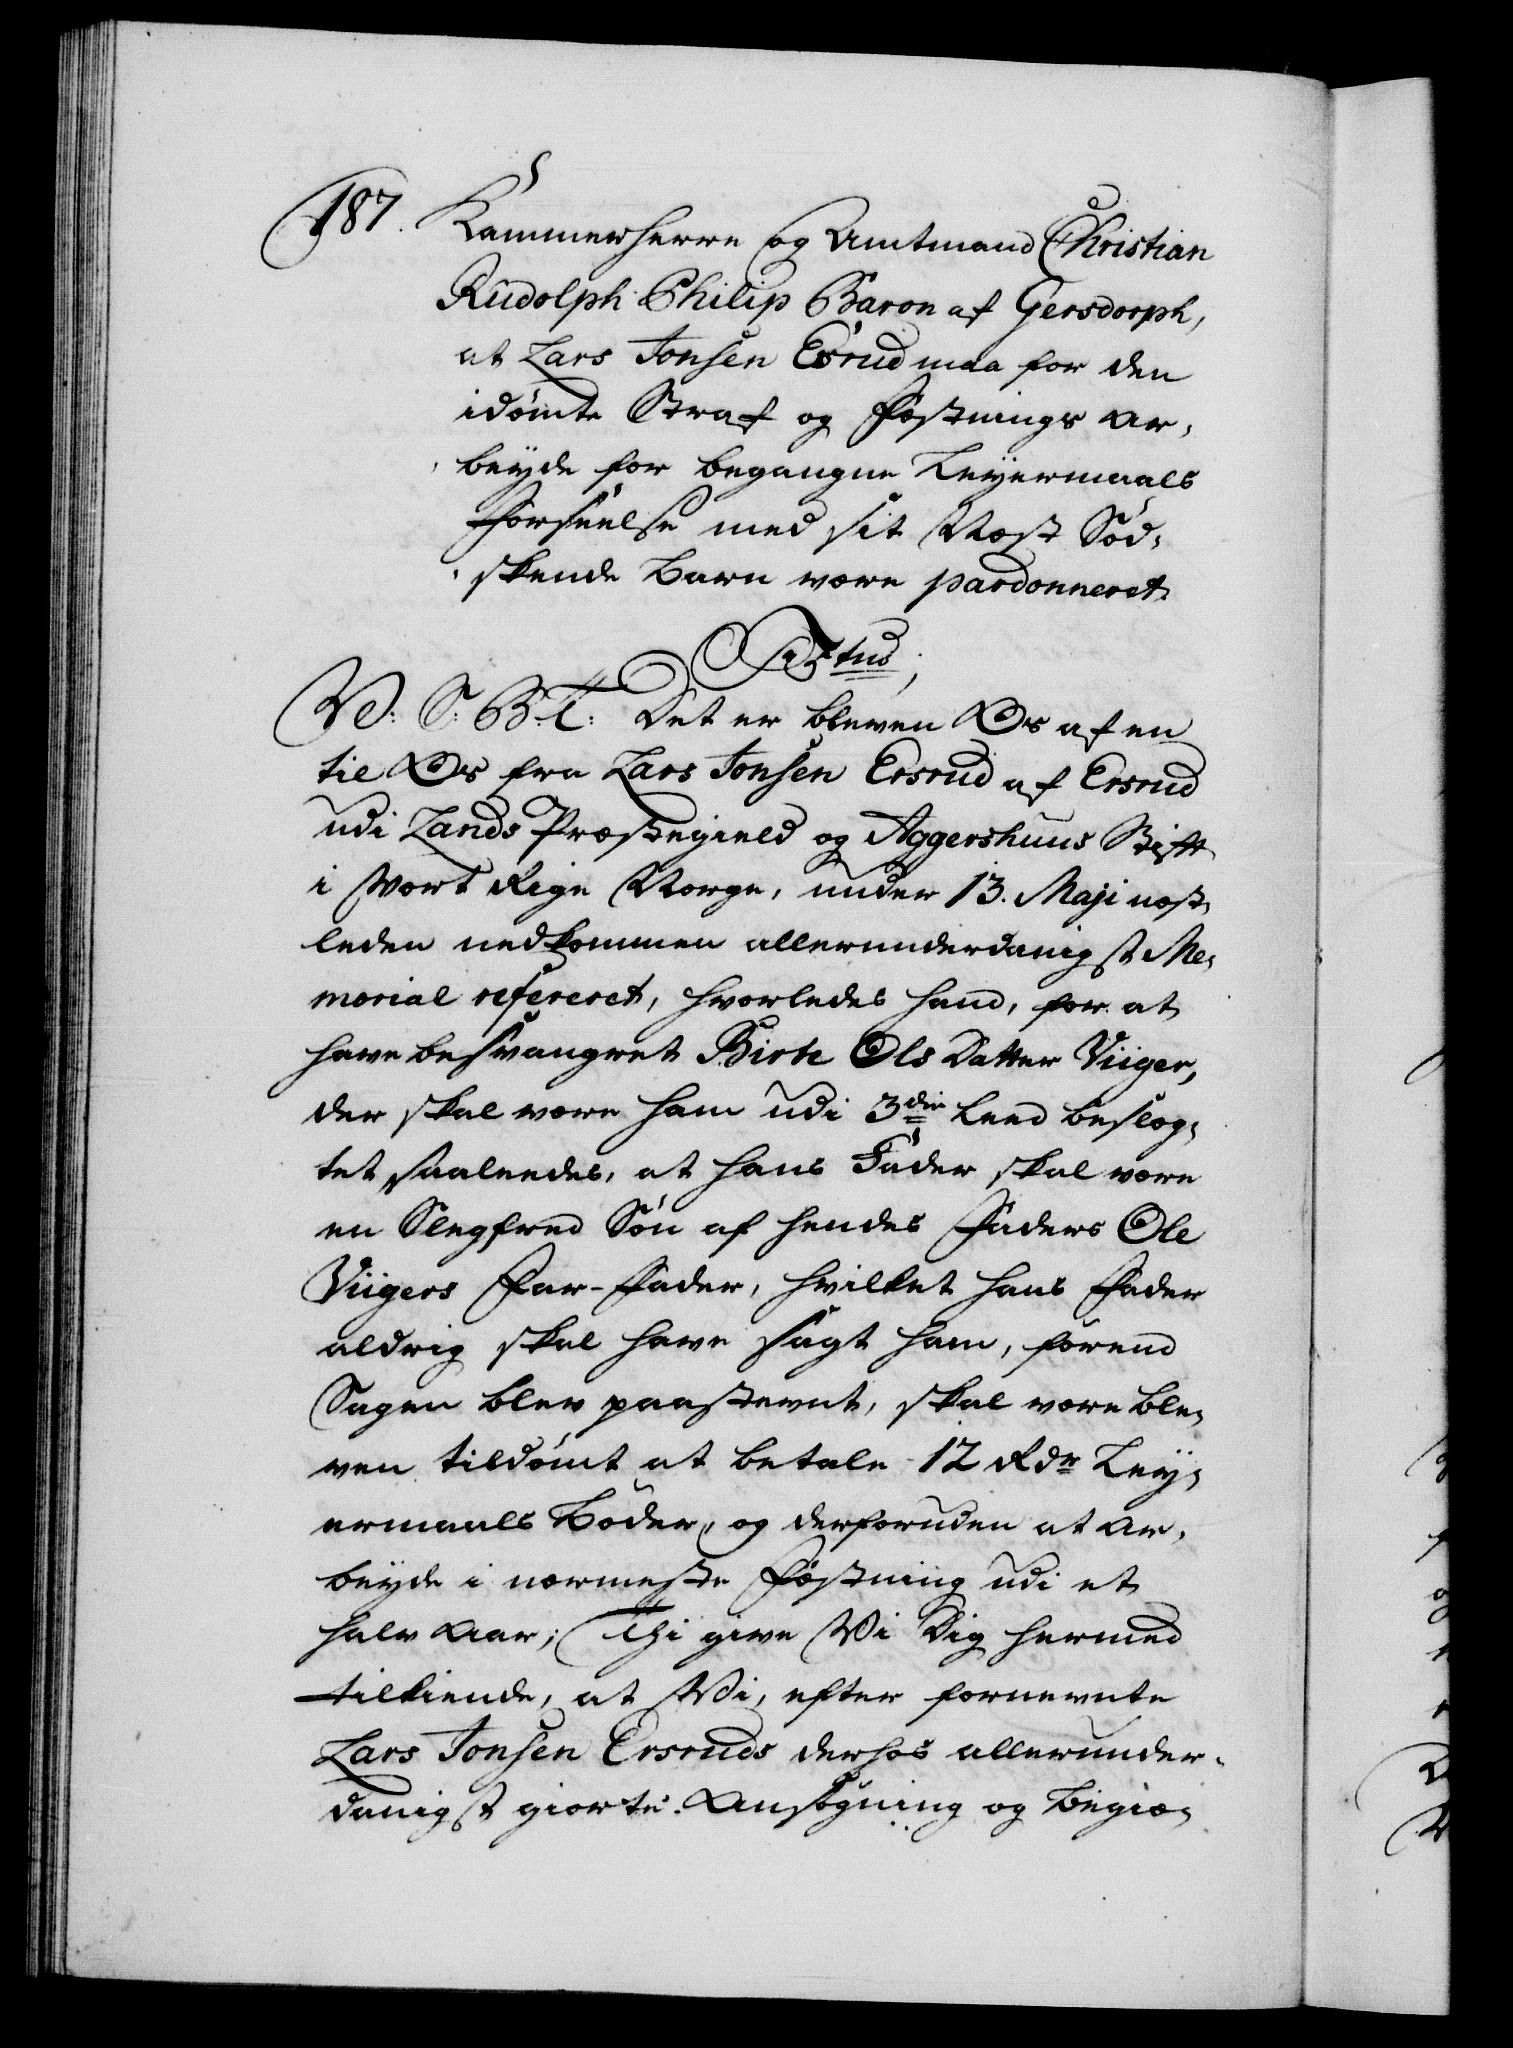 187. Kammerherre og Amtmand Christian
Rudolph Philip Baron af Gersdorph,
at Lars Jonsen Esrud maa for den
idömte Straf og Fæstnings Ar-
beyde for begangne Leyermaals
Forseelse med sit Næst Sød-
skende Barn være pardonneret.
V: S: B: T: Det er bleven Os af en
til Os fra Lars Jonsen Ersrud af Ersrud
udi Lands Præstegield og Aggershuus Stift
i Vort Rige Norge, under 13. Maji næst-
leden nedkommen allerunderdanigst Me-
morial refereret, hvorledes hand, for at
have besvangret Birte Ols Datter Viiger,
der skal være ham udi 3die Leed beslæg-
tet saaleedes, at hans Fader skal være
en Slegfred Søn af hendes Faders Ole
Viigers Far-Fader, hvilket hans Fader
aldrig skal have sagt ham, førend
Sagen blev paastevnt, skal være ble-
ven tildømt at betale 12 Rdr Ley-
ermaals Bøder, og derforuden at Ar-
beyde i nærmeste Fæstning udi et
halv Aar; Thi give Vi Dig hermed
tilkiende, at Vi, efter fornevnte
Lars Jonsen Ersruds derhos allerunder-
danigst giorte Ansøgning og Begiæ-